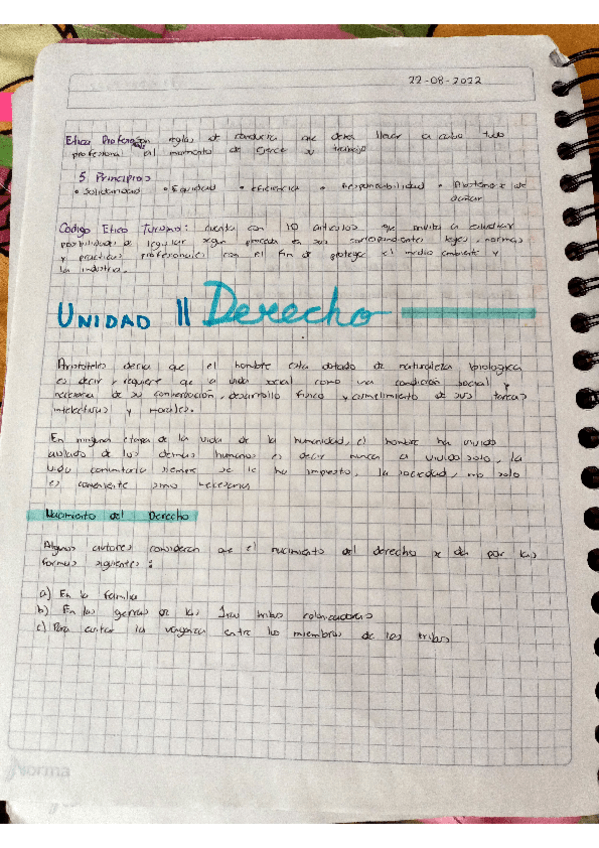 22-08-2022
Etica Profesion reglas de conducta que debe llevar a cabo todo
profesional al momento de ejercer su trabajo
5 Principios
• Solidaridad legal • Equidad • Eficiencia • Responsabilidad • Abstenerse de
actuar
Codigo Etico Turismo: cuenta con 10 articulos que invita a
posibilidades de regular segun proceda en sus correspondientes leyes, normas
y practicas profesionales con el fin de proteger el medio ambiente y
la industria.
UNIDAD II Derecho
Aristoteles decia que el hombre esta dotado de naturaleza biologica
es decir, requiere que la vida social como una condición social y
necesaria de su conservación, desarrollo fisico y de sus tareas
intelecturas y morales.
En ninguna etapa de la vida de la humanidad, el hombre ha vivido
aislado de los demas humanos es decir nunca a vivido solo, la
vida comunitaria siempre se le ha impuesto, la sociedad, no solo
es conveniente sino necesaria
Nacimiento del Derecho
Algunos autores consideran que el nacimiento del derecho se da por las
formas siguientes:
a) En la familia
b) En las guerras de las 1ras tribus colonizadoras
c) Para evitar la venganza entre los miembros de las tribus
Norma